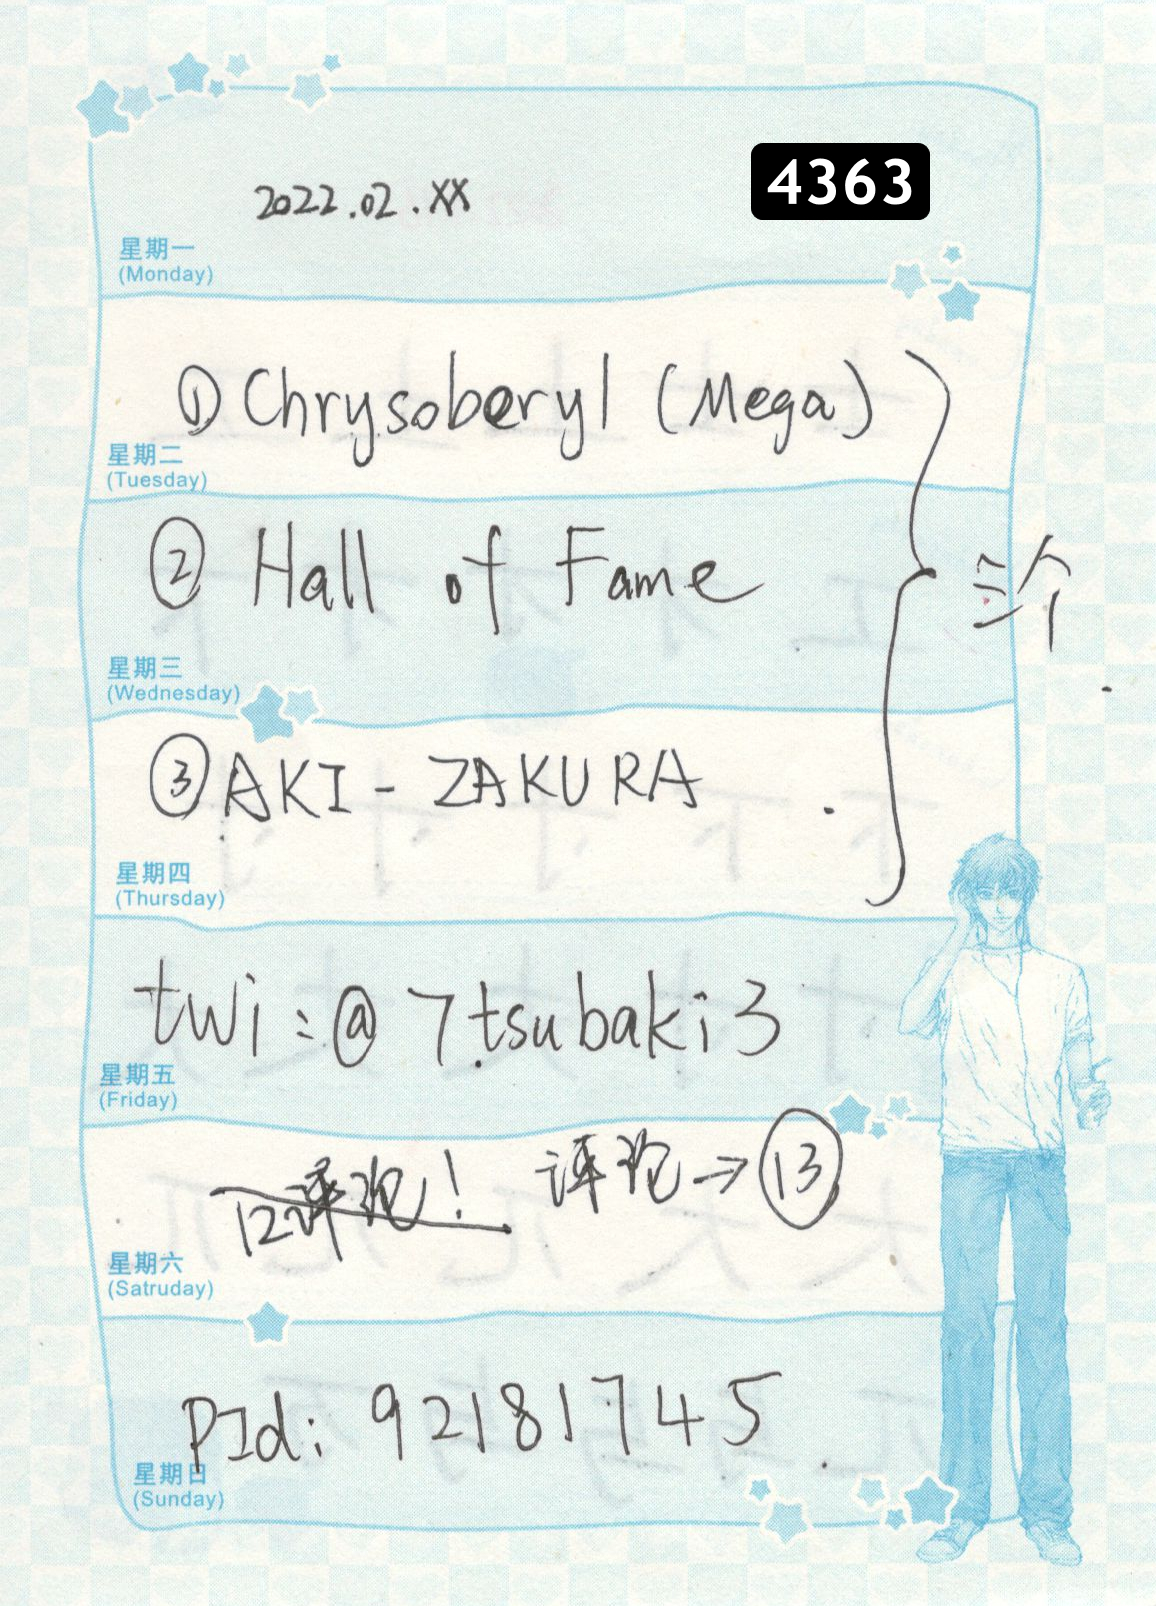 4363
2022.02.XX
星期一
(Monday)
①Chrysoberyl (Mega)
星期二
(Tuesday)
② Hall of Fame
三个
星期三
(Wednesday)
③AKI-ZAKURA
星期四
(Thursday)
twi:@7tsubaki3
星期五
(Friday)
12评论! 评论→⑬
星期六
(Satruday)
PId: 92181745
星期日
(Sunday)